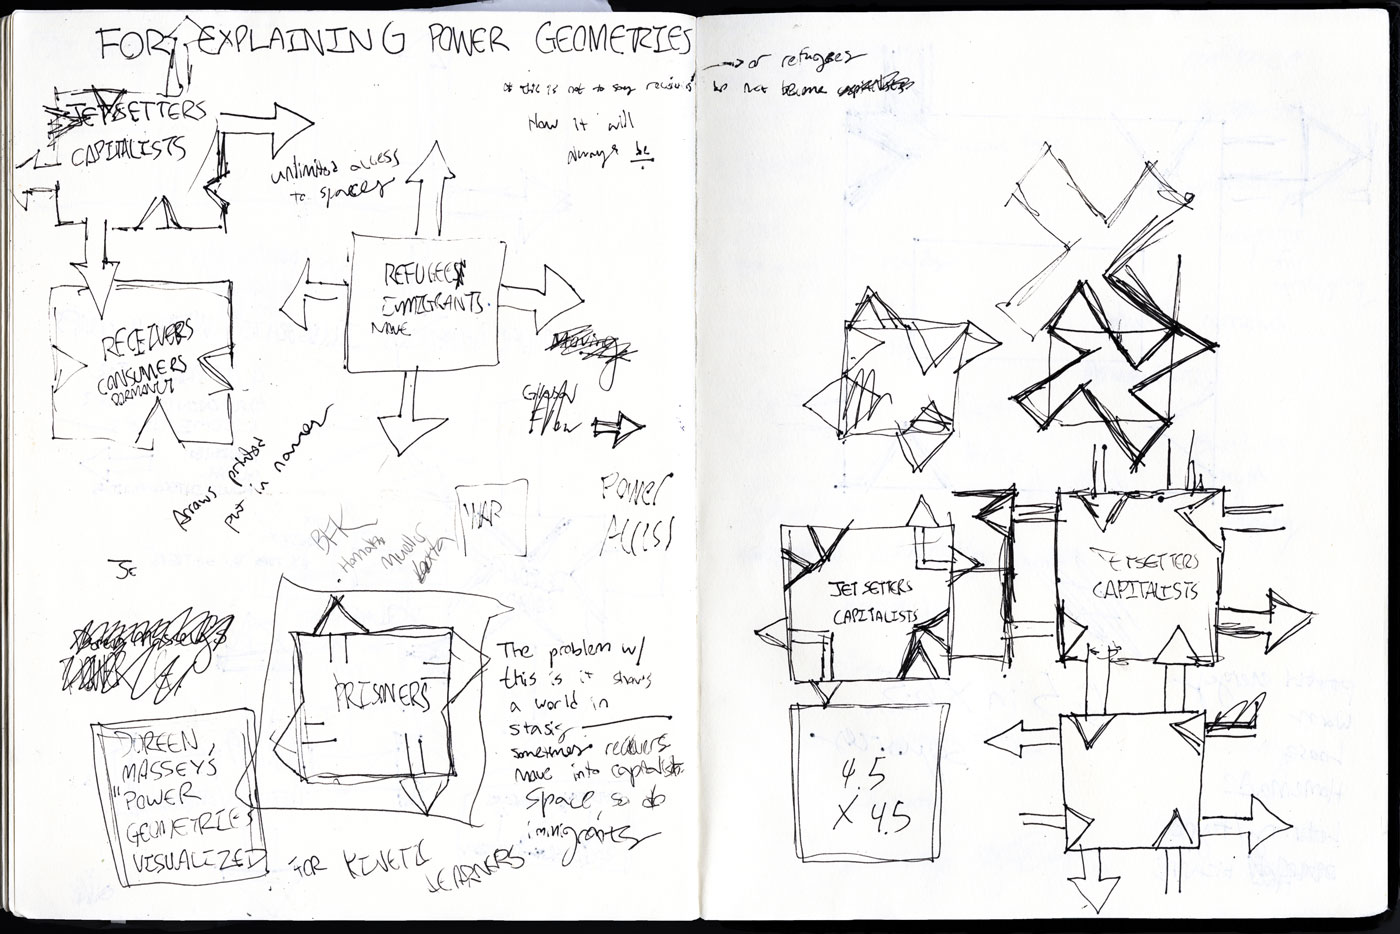 FOR EXPLAINING POWER GEOMETRIES
→ or refugees
* this is not to say receivers do not become
Now it will
always be
JETSETTERS
CAPITALISTS
unlimited access
to spaces
REFUGEES
IMMIGRANTS
MOVE
RECEIVERS
CONSUMERS
DORMANT
Moving
Global
Flow
Arrows printed
put in manner
POWER
ACCESS
WAR
BFK
Je
PRISONERS
The problem w/
this is it shows
a world in
stasis
sometimes receivers
move into capitalist
space so do
immigrants
DOREEN
MASSEY'S
"POWER
GEOMETRIES"
VISUALIZED
FOR KINETIC
LEARNERS
JETSETTERS
CAPITALISTS
JETSETTERS
CAPITALISTS
4.5
X 4.5